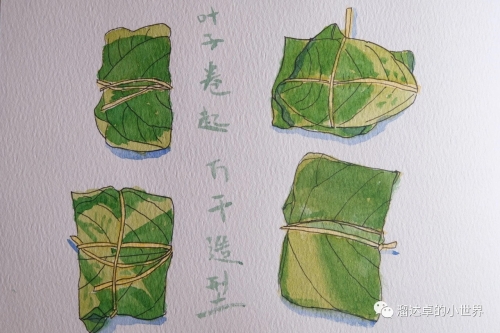 叶子卷起 百千造型
溜达卓的小世界